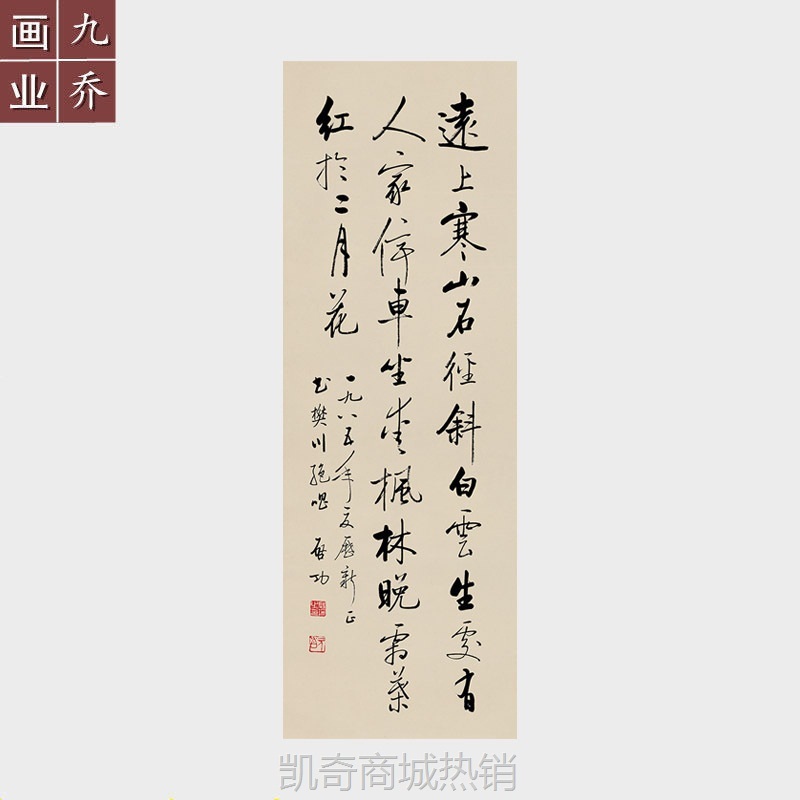 九乔
画业
遠上寒山石徑斜白雲生處有
人家停車坐愛楓林晚霜葉
紅於二月花
一九八五年夏曆新正
書樊川絕唱 啟功
凯奇商城热销